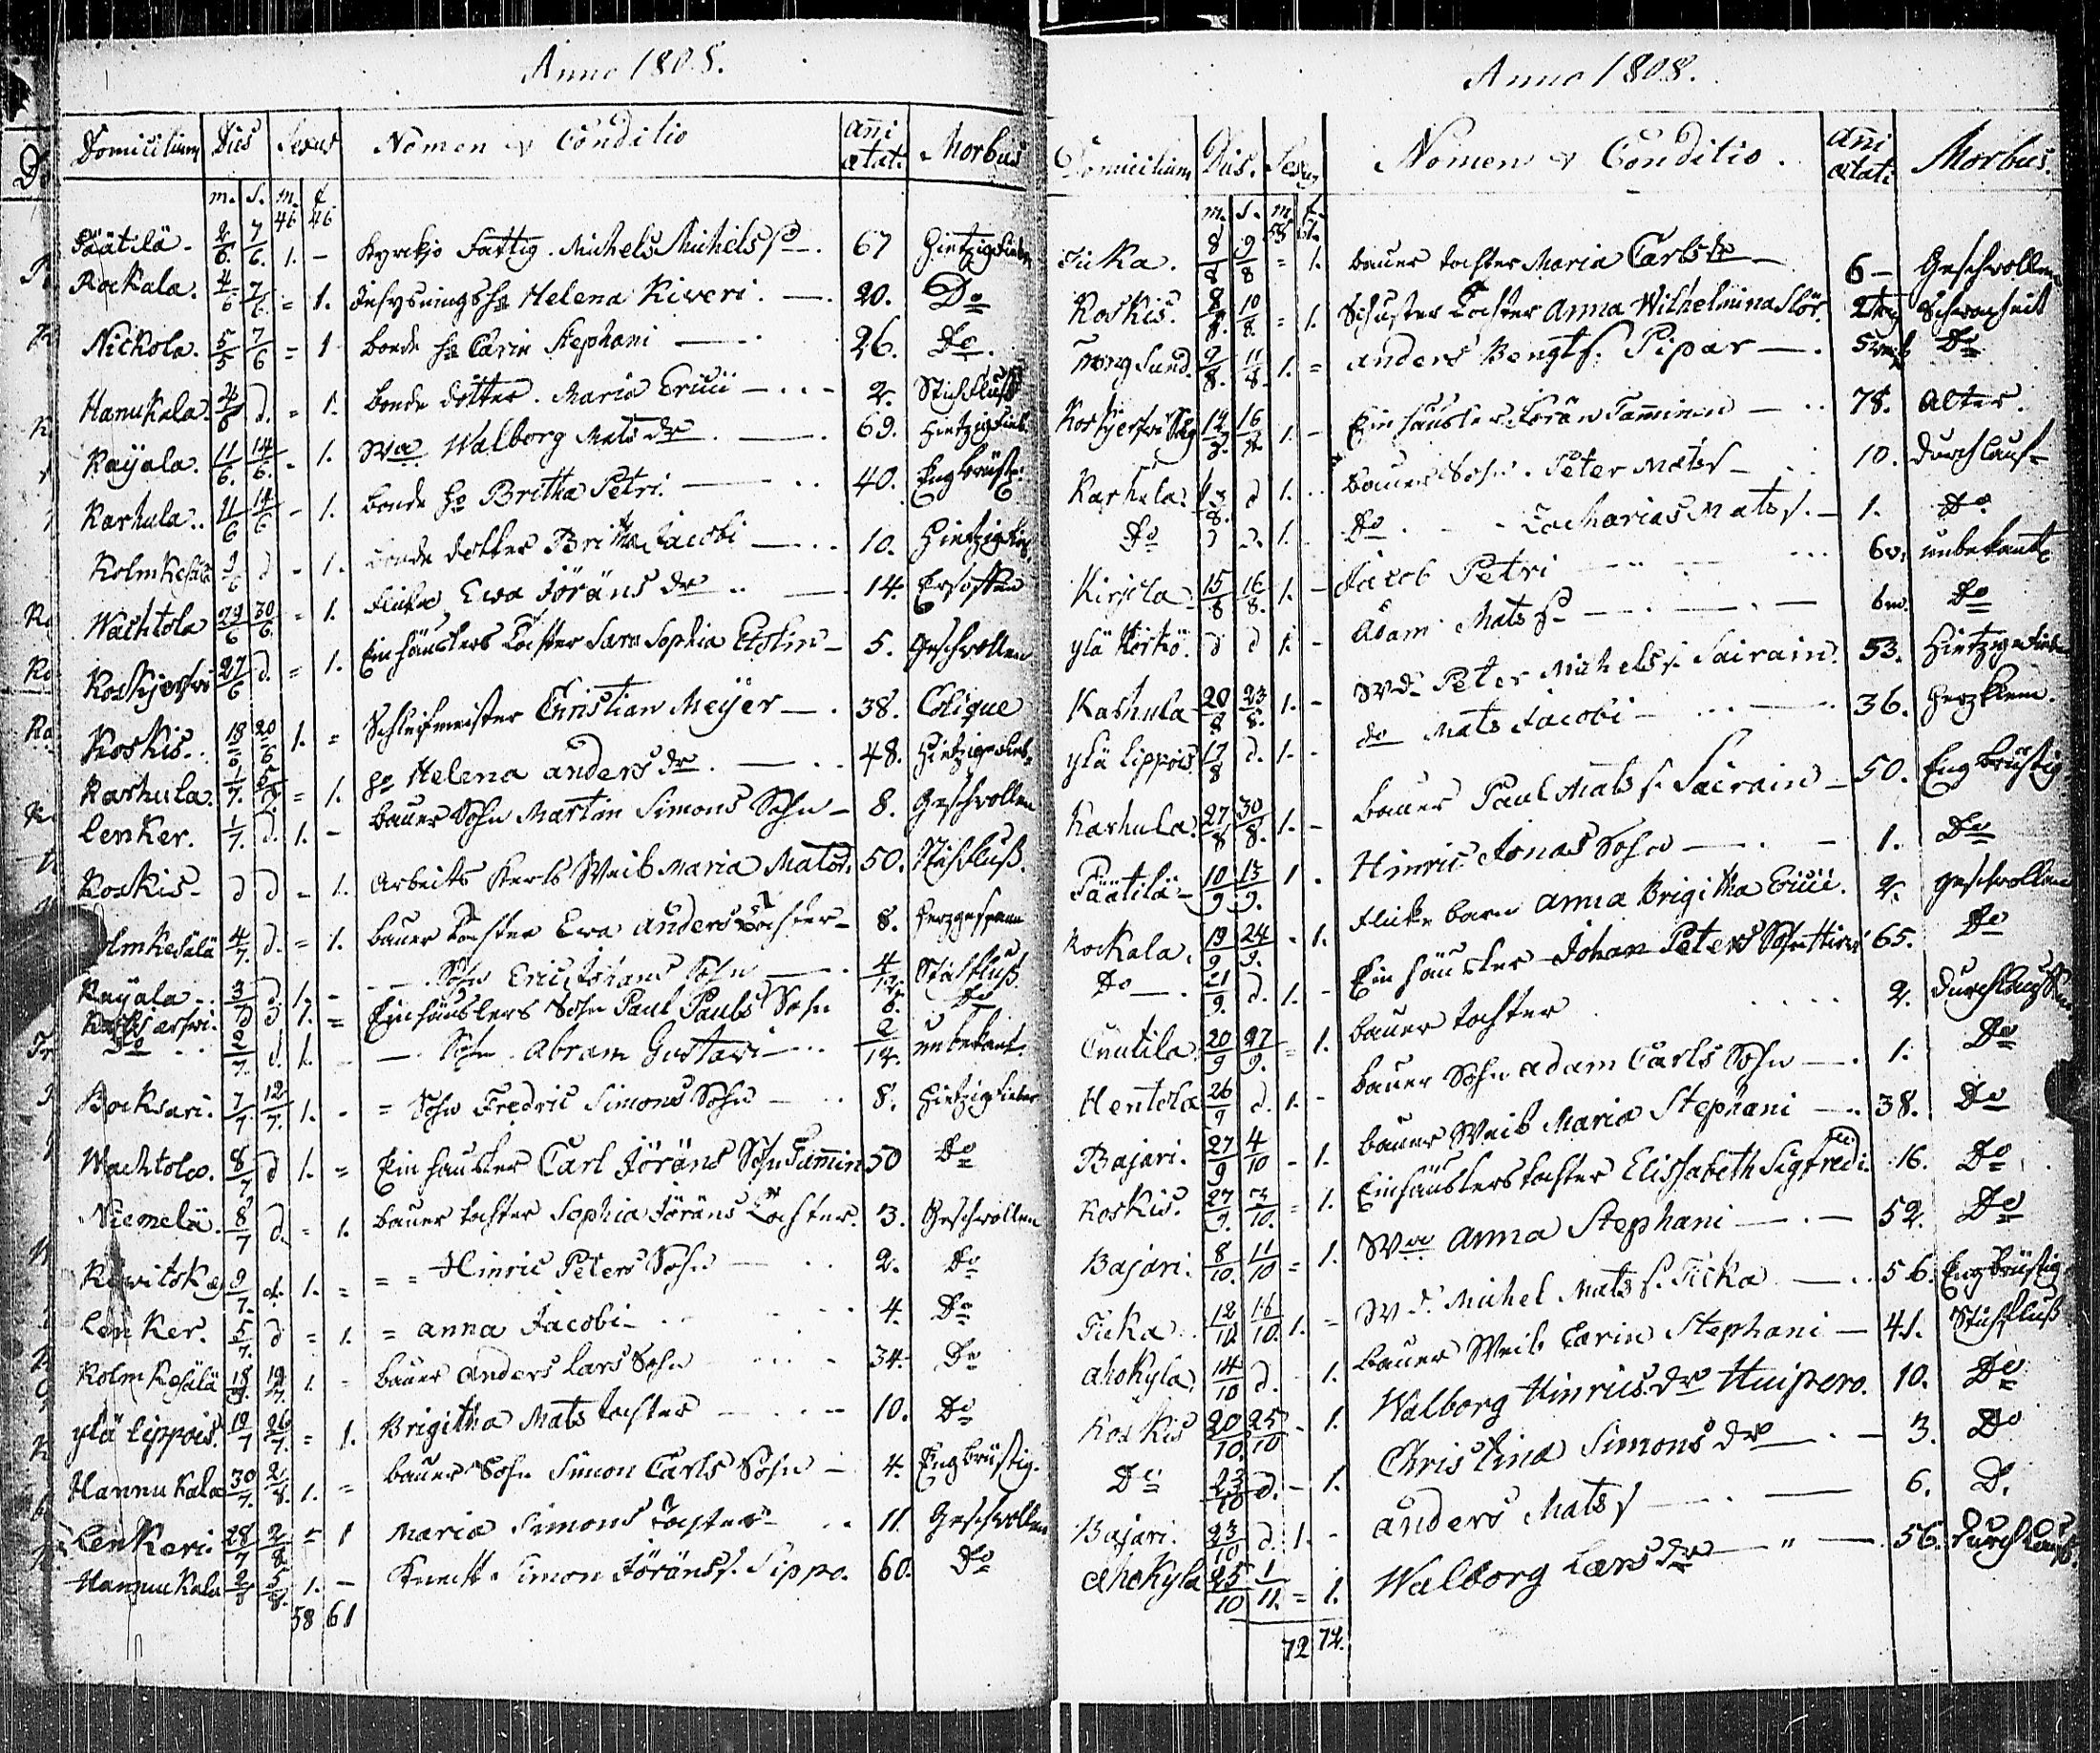 Anno 1808.
Domicilium Dies Sexus Nomen & Conditio añi ætat: Morbus
m. s. m. f.
46 46
Päätilä - 2/6. 7/6. 1. - Kyrckjo Fattig. Michels Michels 67 Hietzig Fieber
Rockala. 4/6 7/6. = 1. Helena Kiveri. 20. Do
Nickola. 5/5 7/6 = 1 bonde Carin Stephani 26. Do.
Hanukala. d. = 1. bonde dotter. Maria Ericii 2. Stichfluß
Kayala. 11/6. 14/6. - 1. Walborg Mats dr. 69. Hietzig Fieb.
Karhula. 11/6 14/6 - 1. bonde Britha Petri. 40. Engbrüstig
Kolmkesälä d - 1. bonde dotter Britha Jacobi 10. Hietzig
Wachtola 29/6 30/6. = 1. Ewa Jöräns dr 14. Ersoffen
Koskjerfwi 27/6 d. = 1. Einhäuslers Tochter Sara Sophia 5. Geschwollen
Koskis. 18/6 20/6 1. = Schleifmeister Christian Meÿer 38. Colique
Karhula. 1/7. = 1. Helena anders dr. 48. Hietzige Fieb.
Lenker. 1/7. d. 1. - bauer Sohn Martin Simons Sohn 8. Geschwollen
Koskis - d d = 1. Arbeits Kerls Weib Maria Mats 50. Stichfluß.
Kolmkesälä 4/7. d. = 1. bauer Tochter Ewa anders Tochter 8. Herzgespann
Kayala 3/7 d. 1. - - - Sohn Eric Johans Sohn 4/12 Stickfluß.
d d 1. = Einhäuslers Sohn Paul Pauls Sohn Do
Do 2/7. d. 1. - Sohn Abram Gustavi unbekant.
Bocksari. 7/7 12/7. 1. - = Sohn Fredric Simons Sohn 8. Hietzig Fieber
Wachtola. 8/7 d 1. = Einhäusler Carl Jöräns Sohn Tammin 50 Do
Niemelä. 8/7 d. = 1. bauer tochter Sophia Jöräns Tochter. 3. Geschwollen
9/7. d. 1. = = = Hinric Peters Sohn 2. Do
Lenker. 5/7. d = 1. = anna Jacobi 4. Do
Kolmkesälä 18/7. 19/7 1. - bauer Anders Lars Sohn 34. Do
ylä Lippois. 19/7 26/7. = 1. Brigitha Mats tochter 10. Do
Hannukala 30/7. 2/8. 1. = bauer Sohn Simon Carls Sohn 4. Engbrüstig.
Lenkeri 28/7 2/8. = 1 Maria Simons Tochter 11. Geschwollen
Hannukala 2/8 5/8. 1. - Knecht Simon Jöräns s. Sippo. 60. Do
58 61
Anno 1808.
Domicilium Dies. Sexus Nomen & Conditio. añi ætati Morbus.
m. s. m. f.
Ticka. 8/8 9/8 = 1. bauer tochter Maria Carlsdr 6 - Geschwollen
Koskis. 8/8. 10/8. = 1. Schuster Tochter Anna Wilhelmina Slör. Schwachheit
Trongsund. 9/8. 11/8. 1. = anders Bengts. Pipar Do
16/8. 1. - Einhäusler Jörän Tamminen 78. Alter.
Karhula. d. 1. bauer Sohn Peter Mats 10. Durchlauf
Do d d. 1. Do Zacharias Mats s. 1. Do
Kirjola. 15/8 16/8. 1. - Jacob Petri unbekant
ylä Kirkiö. d d 1. - Adam Mats Do
Karhula 20/8 23/8. 1. - Peter Michels s. Sairain. 53. Hietzige Fieber
ylä Lippois 17/8 d. 1. - do Mats Jacobi 36. Herzklem.
Karhula. 27/8 30/8. 1. - bauer Paul Mats s. Sairain 50. Engbrüstig
Päätilä - 10/9 13/9. 1. Hinric Jonas Sohn 1. Do
Rockala. 19/9 24/9. - 1. Flicke barn Anna Brigitha Ericii. 2. geschwollen
Do 21/9. d. 1. - Einhäusler Johan Peters Sohn 65. Do
Cnutila. 20/9 27/9. = 1. bauer tochter 2. Durchlauf
Hentola 26/9 d. 1. - bauer Sohn adam Carls Sohn 1. Do
Bajari. 27/9 4/10 - 1. bauer Weib Maria Stephani 38. Do
Koskis. 27/9. 3/10. = 1. Einhäuslers tochter Elissabeth Sigfredi. 16. Do
Bajari. 8/10. 11/10 = 1. Anna Stephani 52. Do
Ticka. 12/10. 16/10. 1. = Michel Mats s. Ticka 56. Engbrüstig
ahokyla. 14/10 d. 1. bauer Weib Carin Stephani 41. Stichfluß
Koskis 20/10. 25/10 - 1. Walborg Hinrics dr Huipero. 10. Do
Do 23/10 d. - 1. Christina Simons dr 3. Do
Bajari. 23/10 d. 1. - anders Mats 6. D.
Ahokyla 25/10 1/11. = 1. Walborg Lars dr 56. Durchlauf.
72 74.